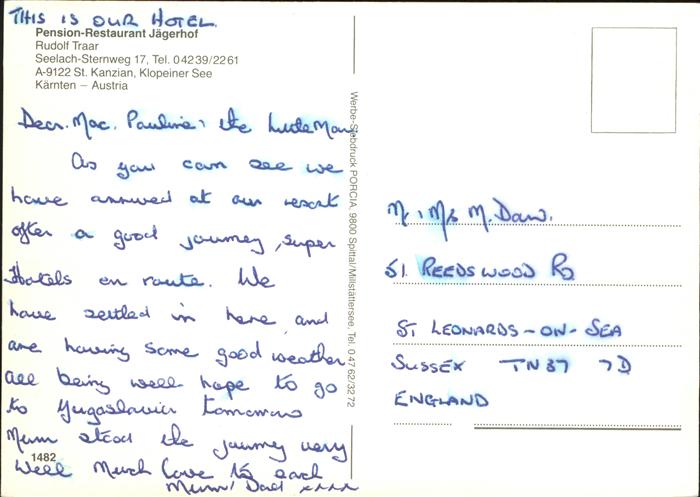 THIS IS OUR HOTEL.
Pension-Restaurant Jägerhof
Rudolf Traar
Seelach-Sternweg 17, Tel. 04239/2261
A-9122 St. Kanzian, Klopeiner See
Kärnten – Austria
Dear. Mac. Pauline, & the little Man
As you can see we
have arrived at our resort
after a good journey, super
Hotels en route. We
have settled in here, and
are having some good weather
all being well hope to go
to Yugoslavia tomorrow
Mum stood the journey very
1482
well Much love to each
Mum & Dad xxxx
Werbe-Siebdruck PORCIA, 9800 Spittal/Millstättersee, Tel. 04762/3272
Mr & Mrs M. Daw.
51 REEDSWOOD RD
ST LEONARDS-ON-SEA
SUSSEX TN37 7D
ENGLAND